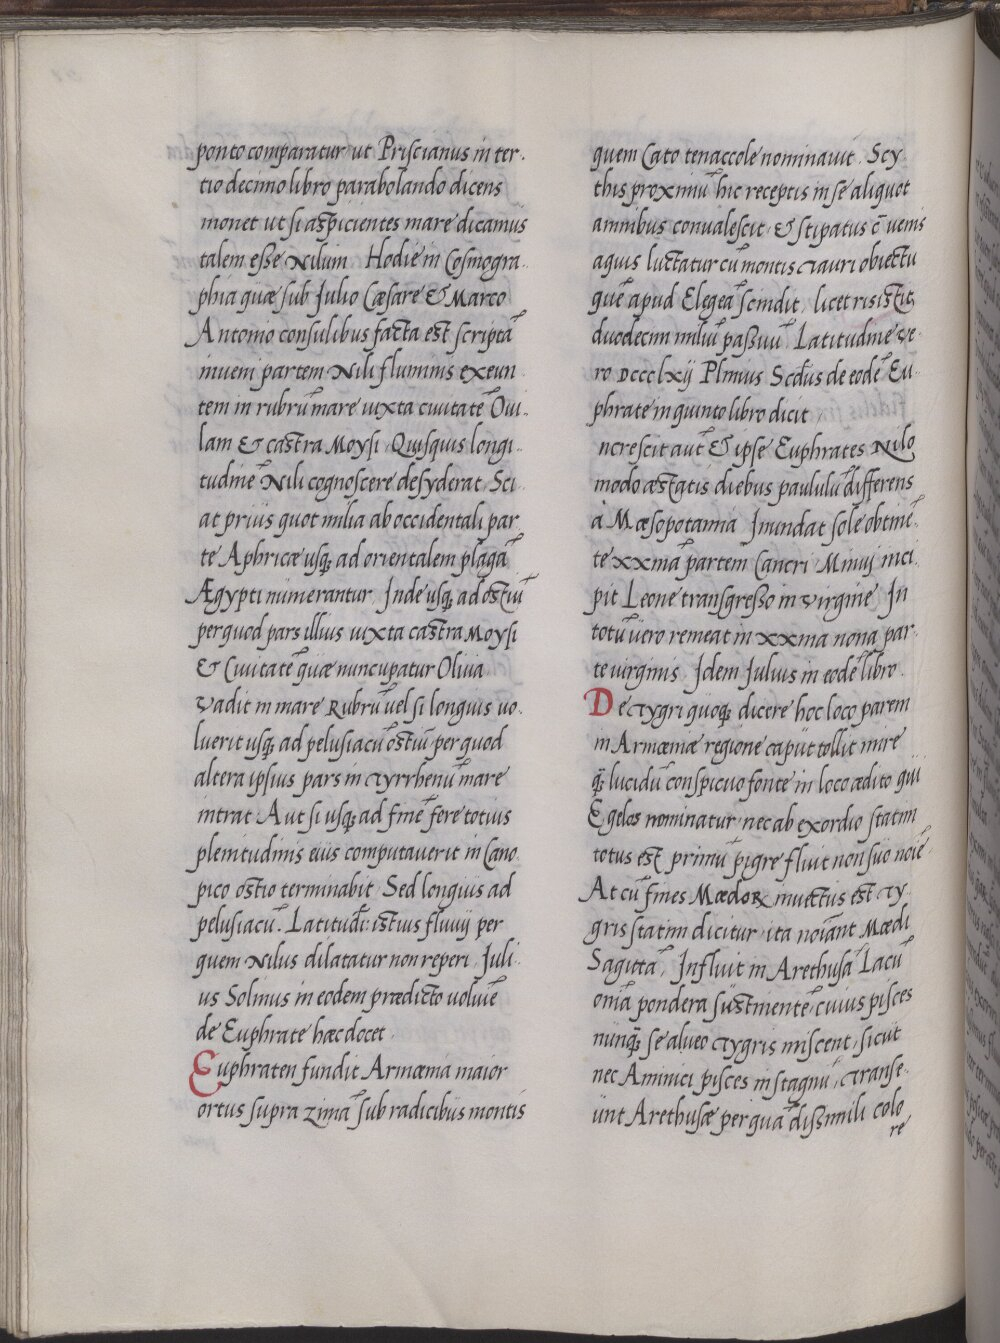 ponto comparatur ut Priscianus in ter.
tio decimo libro parabolando dicens
monet ut si aspicientes mare dicamus
talem esse Nilum Hodie in Cosmogra.
phia quae sub Julio Caesare & Marco
Antonio consulibus facta est scriptā
inueni partem Nili fluminis exeun
tem in rubrū mare iuxta ciuitatē Oui.
lam & castra Moysi. Quisquis longi.
tudinē Nili cognoscere desyderat, Sci.
at prius quot milia ab occidentali par.
te Aphricae usq; ad orientalem plagā
Ægypti numerantur, Inde usq; ad ostiū
per quod pars illius iuxta castra Moysi
& Ciuitatē quae nuncupatur Oliuia
Vadit in mare Rubrū uel si longius uo.
luerit usq; ad pelusiacū ostiū per quod
altera ipsius pars in Tyrrhenū mare
intrat. Aut si usq; ad finē fere totius
plenitudinis eius computauerit in Cano.
pico ostio terminabit. Sed longius ad
pelusiacū. Latitudī: istius fluuij per
quem Nilus dilatatur non reperi, Juli.
us Solinus in eodem praedicto uoluīe
de Euphrate haec docet.
Euphraten fundit Armaenia maior
ortus supra zimā sub radicibus montis
quem Cato tenaccole nominauit. Scy.
this proximū hic receptis in se aliquot
amnibus conualescit, & stipatus c̄ uenis
aquis luctatur cū montis Tauri obiectu
quē apud Elegeā scindit, licet risistit,
duodecim miliū passuū Latitudine ve.
ro DCCCLXIJ Plinius Scd̄us de eodē Eu.
phrate in quinto libro dicit
ncrescit aut̄ & ipse Euphrates Nilo
modo aestatis diebus paululū differens
a Maesopotamia Inundat sole obtinē.
te xxma partem Cancri, Minuj inci.
pit Leone transgresso in Virgine In
totū uero remeat in xxma nona par.
te uirginis. Idem Julius in eodē libro.
De Tygri quoq; dicere hoc loco parem
in Armaeniae regione caput tollit mire
q̄ lucidū conspicuo fonte in loco aedito qui
Egelos nominatur, nec ab exordio statim
totus est, primū pigre fluit non suo noīe.
At cū fines Maedoꝝ inuectus est Ty.
gris statim dicitur, ita noīant Maedi
Sagittā, Influit in Arethusā Lacū
oniā pondera sustinentē, cuius pisces
nunq̄ se alueo Tygris miscent, sicut
nec Aminici pisces in stagnū, Transe.
unt Arethusae per quā dissimili colo
re